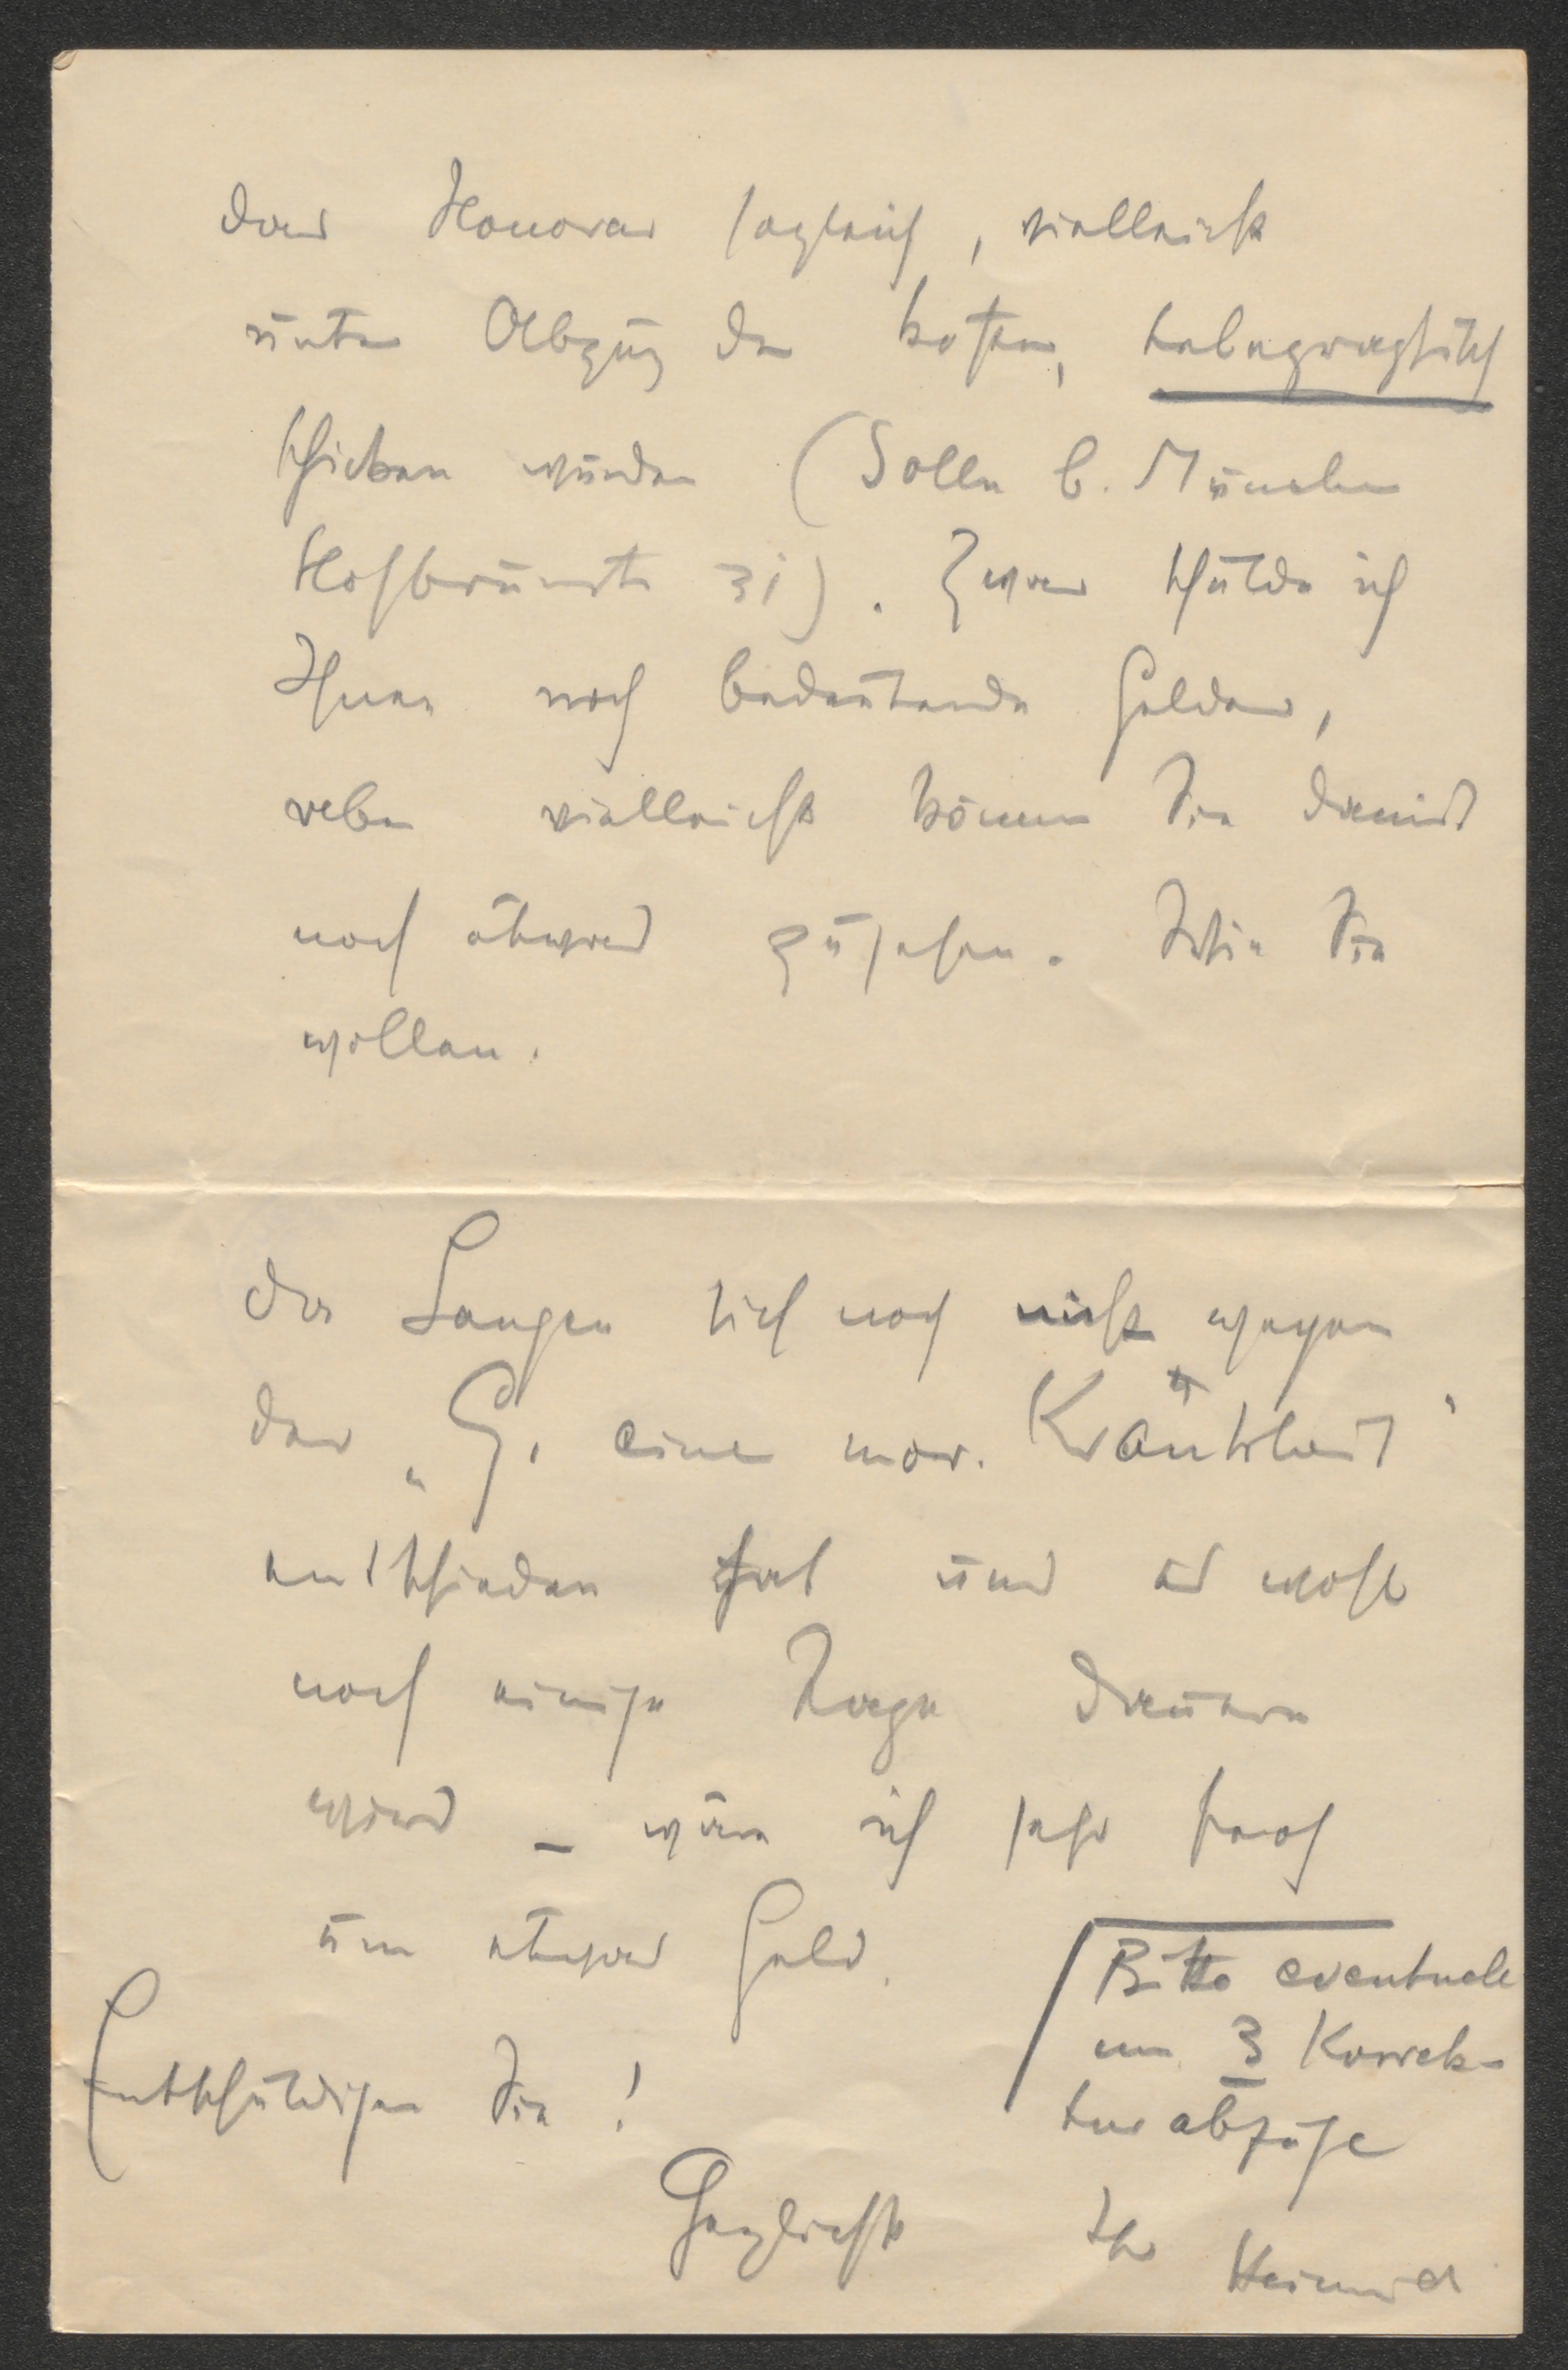 das Honorar sogleich, vielleicht
unter Abzug der Kosten, telegraphisch
schicken würden (Solln b. München
Hofbrunnstr 31). Zwar schulde ich
Ihnen noch bedeutende Gelder,
aber vielleicht können Sie damit
noch etwas zusehen. Wie Sie
wollen.
Da Langen sich noch nicht wegen
der „G. eine mor. Kränkheit“
entschieden hat und es wohl
noch einige Tage dauern
wird – wäre ich sehr froh
um etwas Geld.
Entschuldigen Sie!
Bitte eventuell
um 3 Korrek-
turabzüge
Herzlichst Ihr